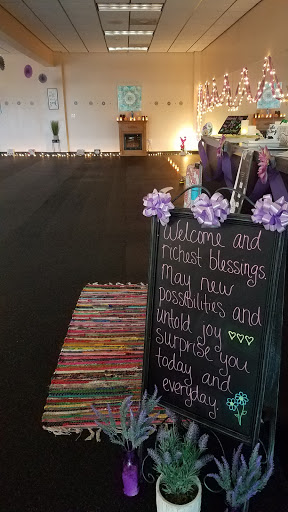 Welcome and
richest blessings.
May new
possibilities and
untold joy
surprise you
today and
everyday.